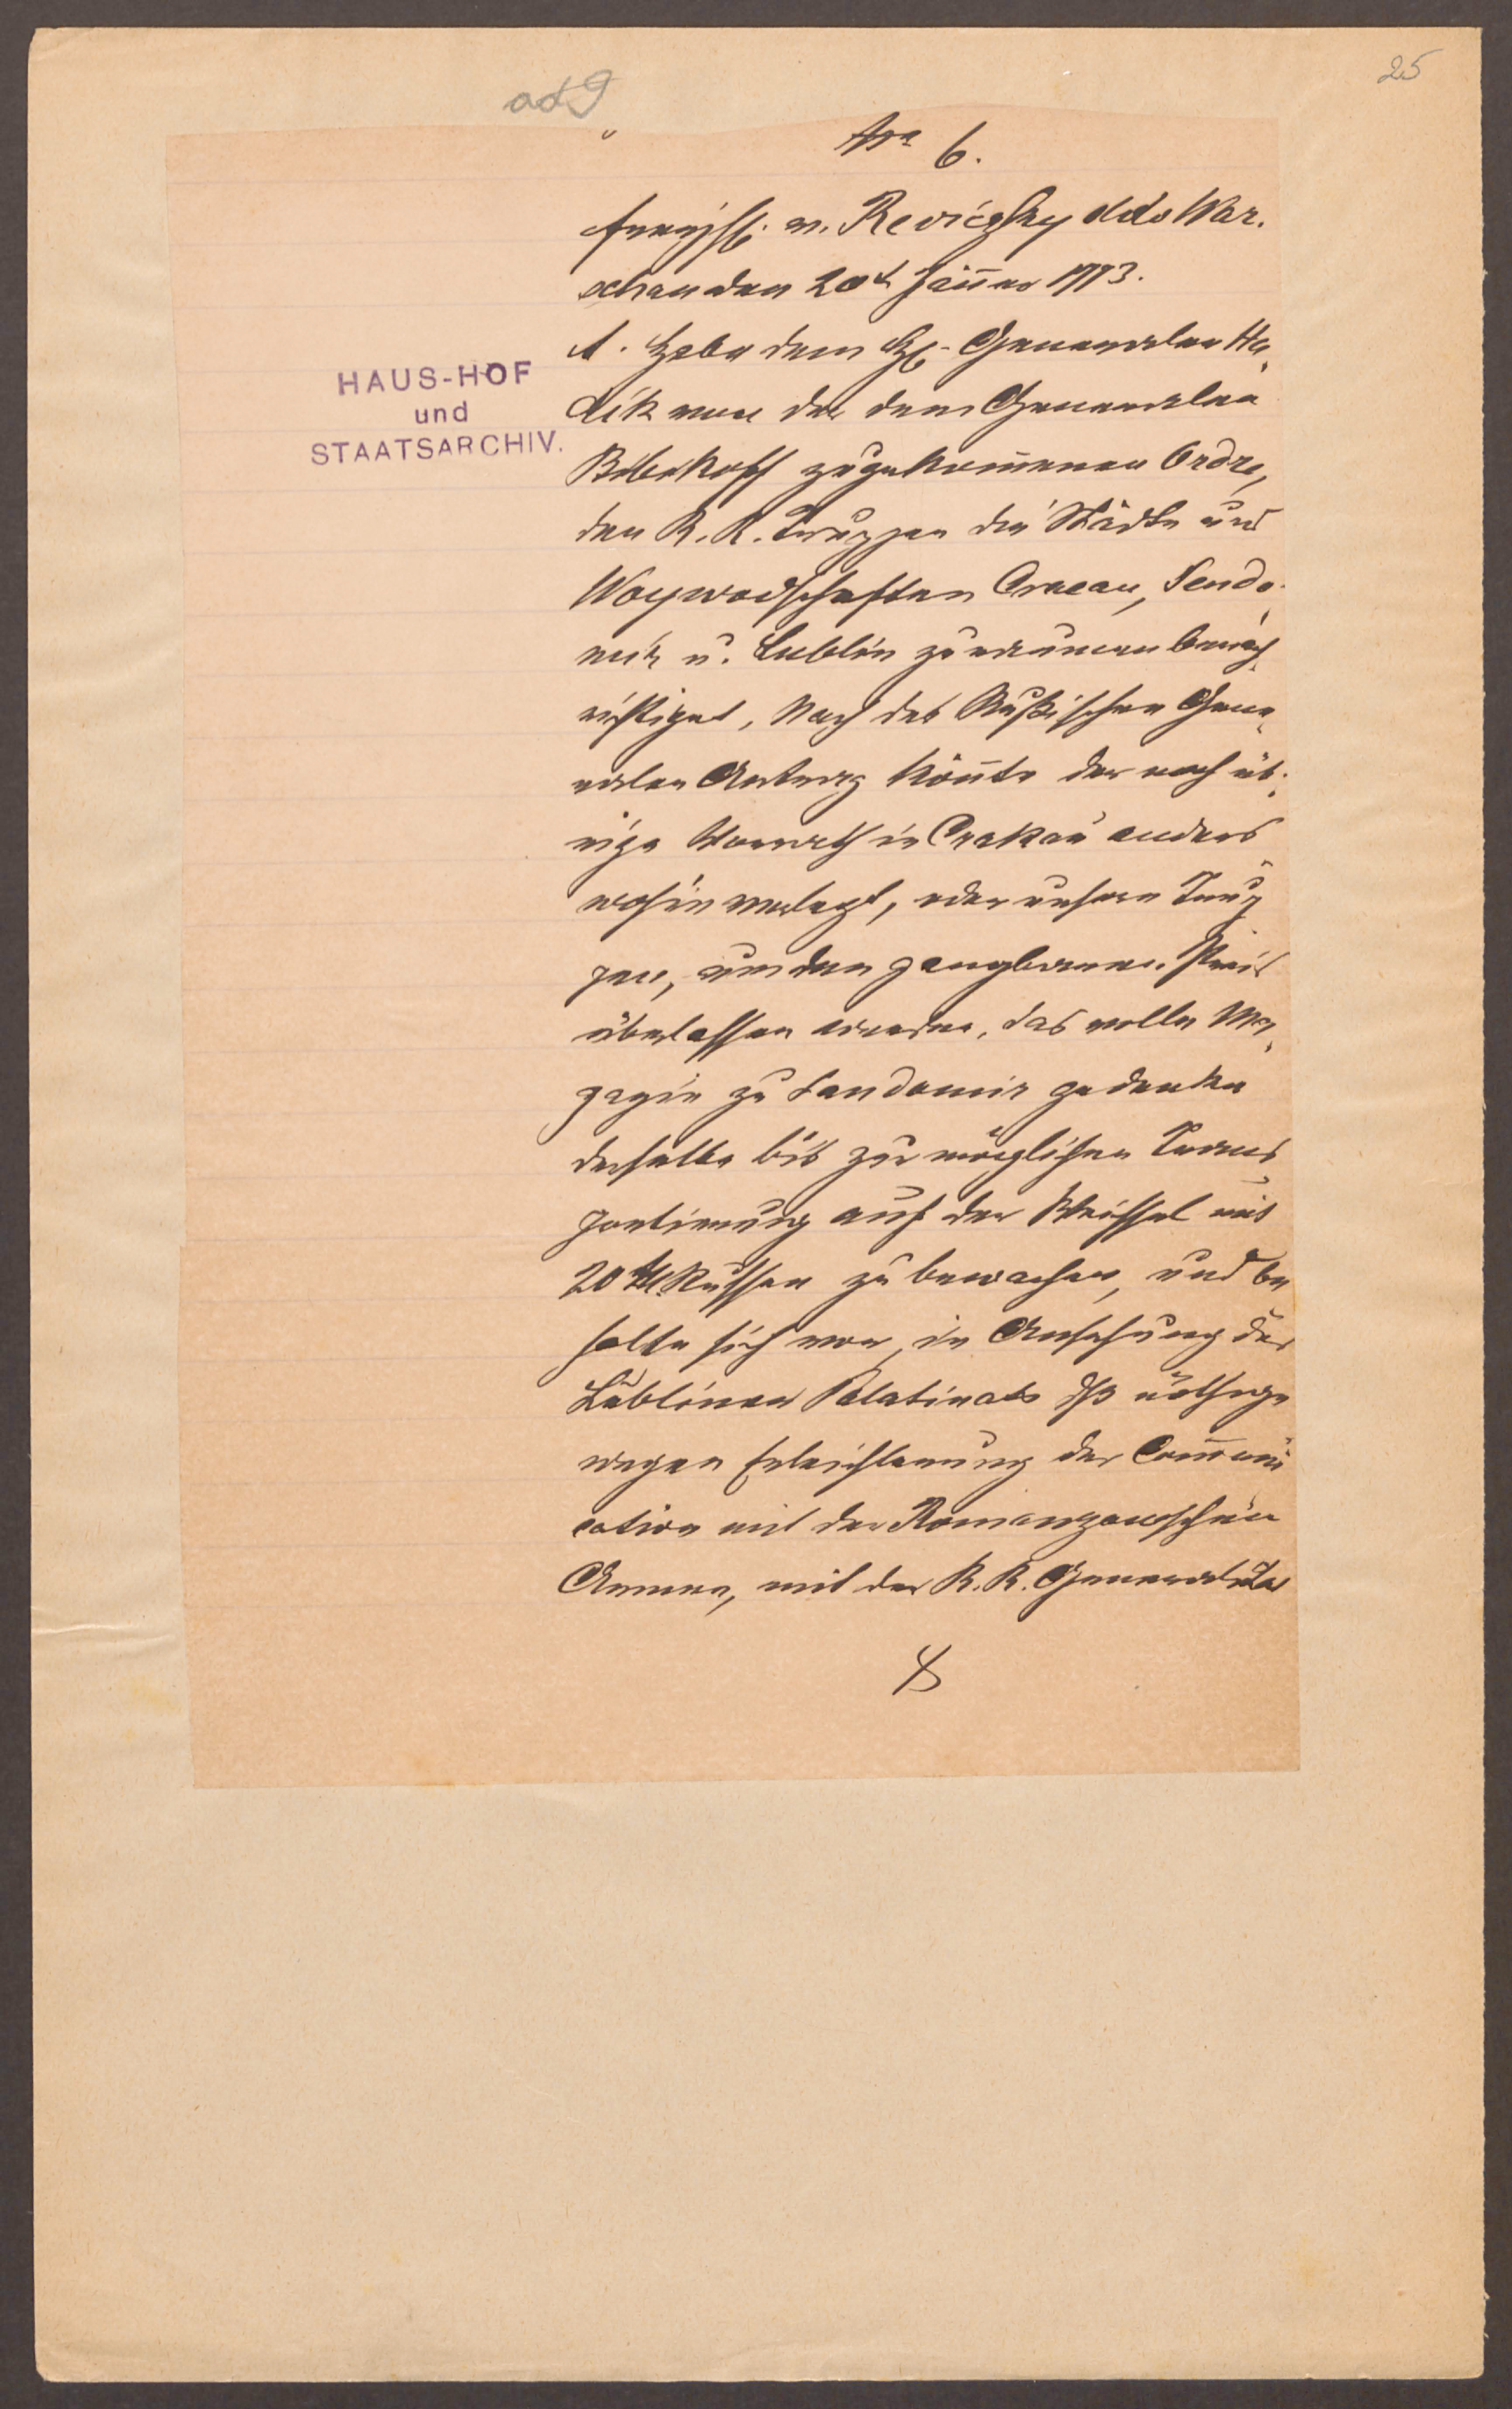 25
ad 9
Nro 6.
v. Reviczky ddo War-
schau den 20t Jäner 1773.
1. Habe dem H. Generalen Ha-
dik von der dem Generalen
Bibikoff zugekomenen Ordre,
den K. K. Truppen die Städte und
Woywodschaften Cracau, Sendo-
mir u. Lublin zu räumen benach-
richtiget, Nach des Rußischen Gene-
ralen Antrag könte der noch üb-
rige Vorrath in Crakau anders
wohin verlegt, oder unseren Trup-
pen, um den gangbaren Preis
überlassen werden, das volle Ma-
gazin zu Sandomir gedenke
derselbe bis zur möglichen Trans-
portierung auf der Weichsel mit
20 M. Russen zu bewachen, und be-
halte sich vor, in Ansehung des
Lubliner Palatinats dß nöthige
wegen Erleichterung der Comuni-
cation mit der Romanzowschen
Armee, mit der K. K. Generalität
HAUS-HOF
und
STAATSARCHIV.